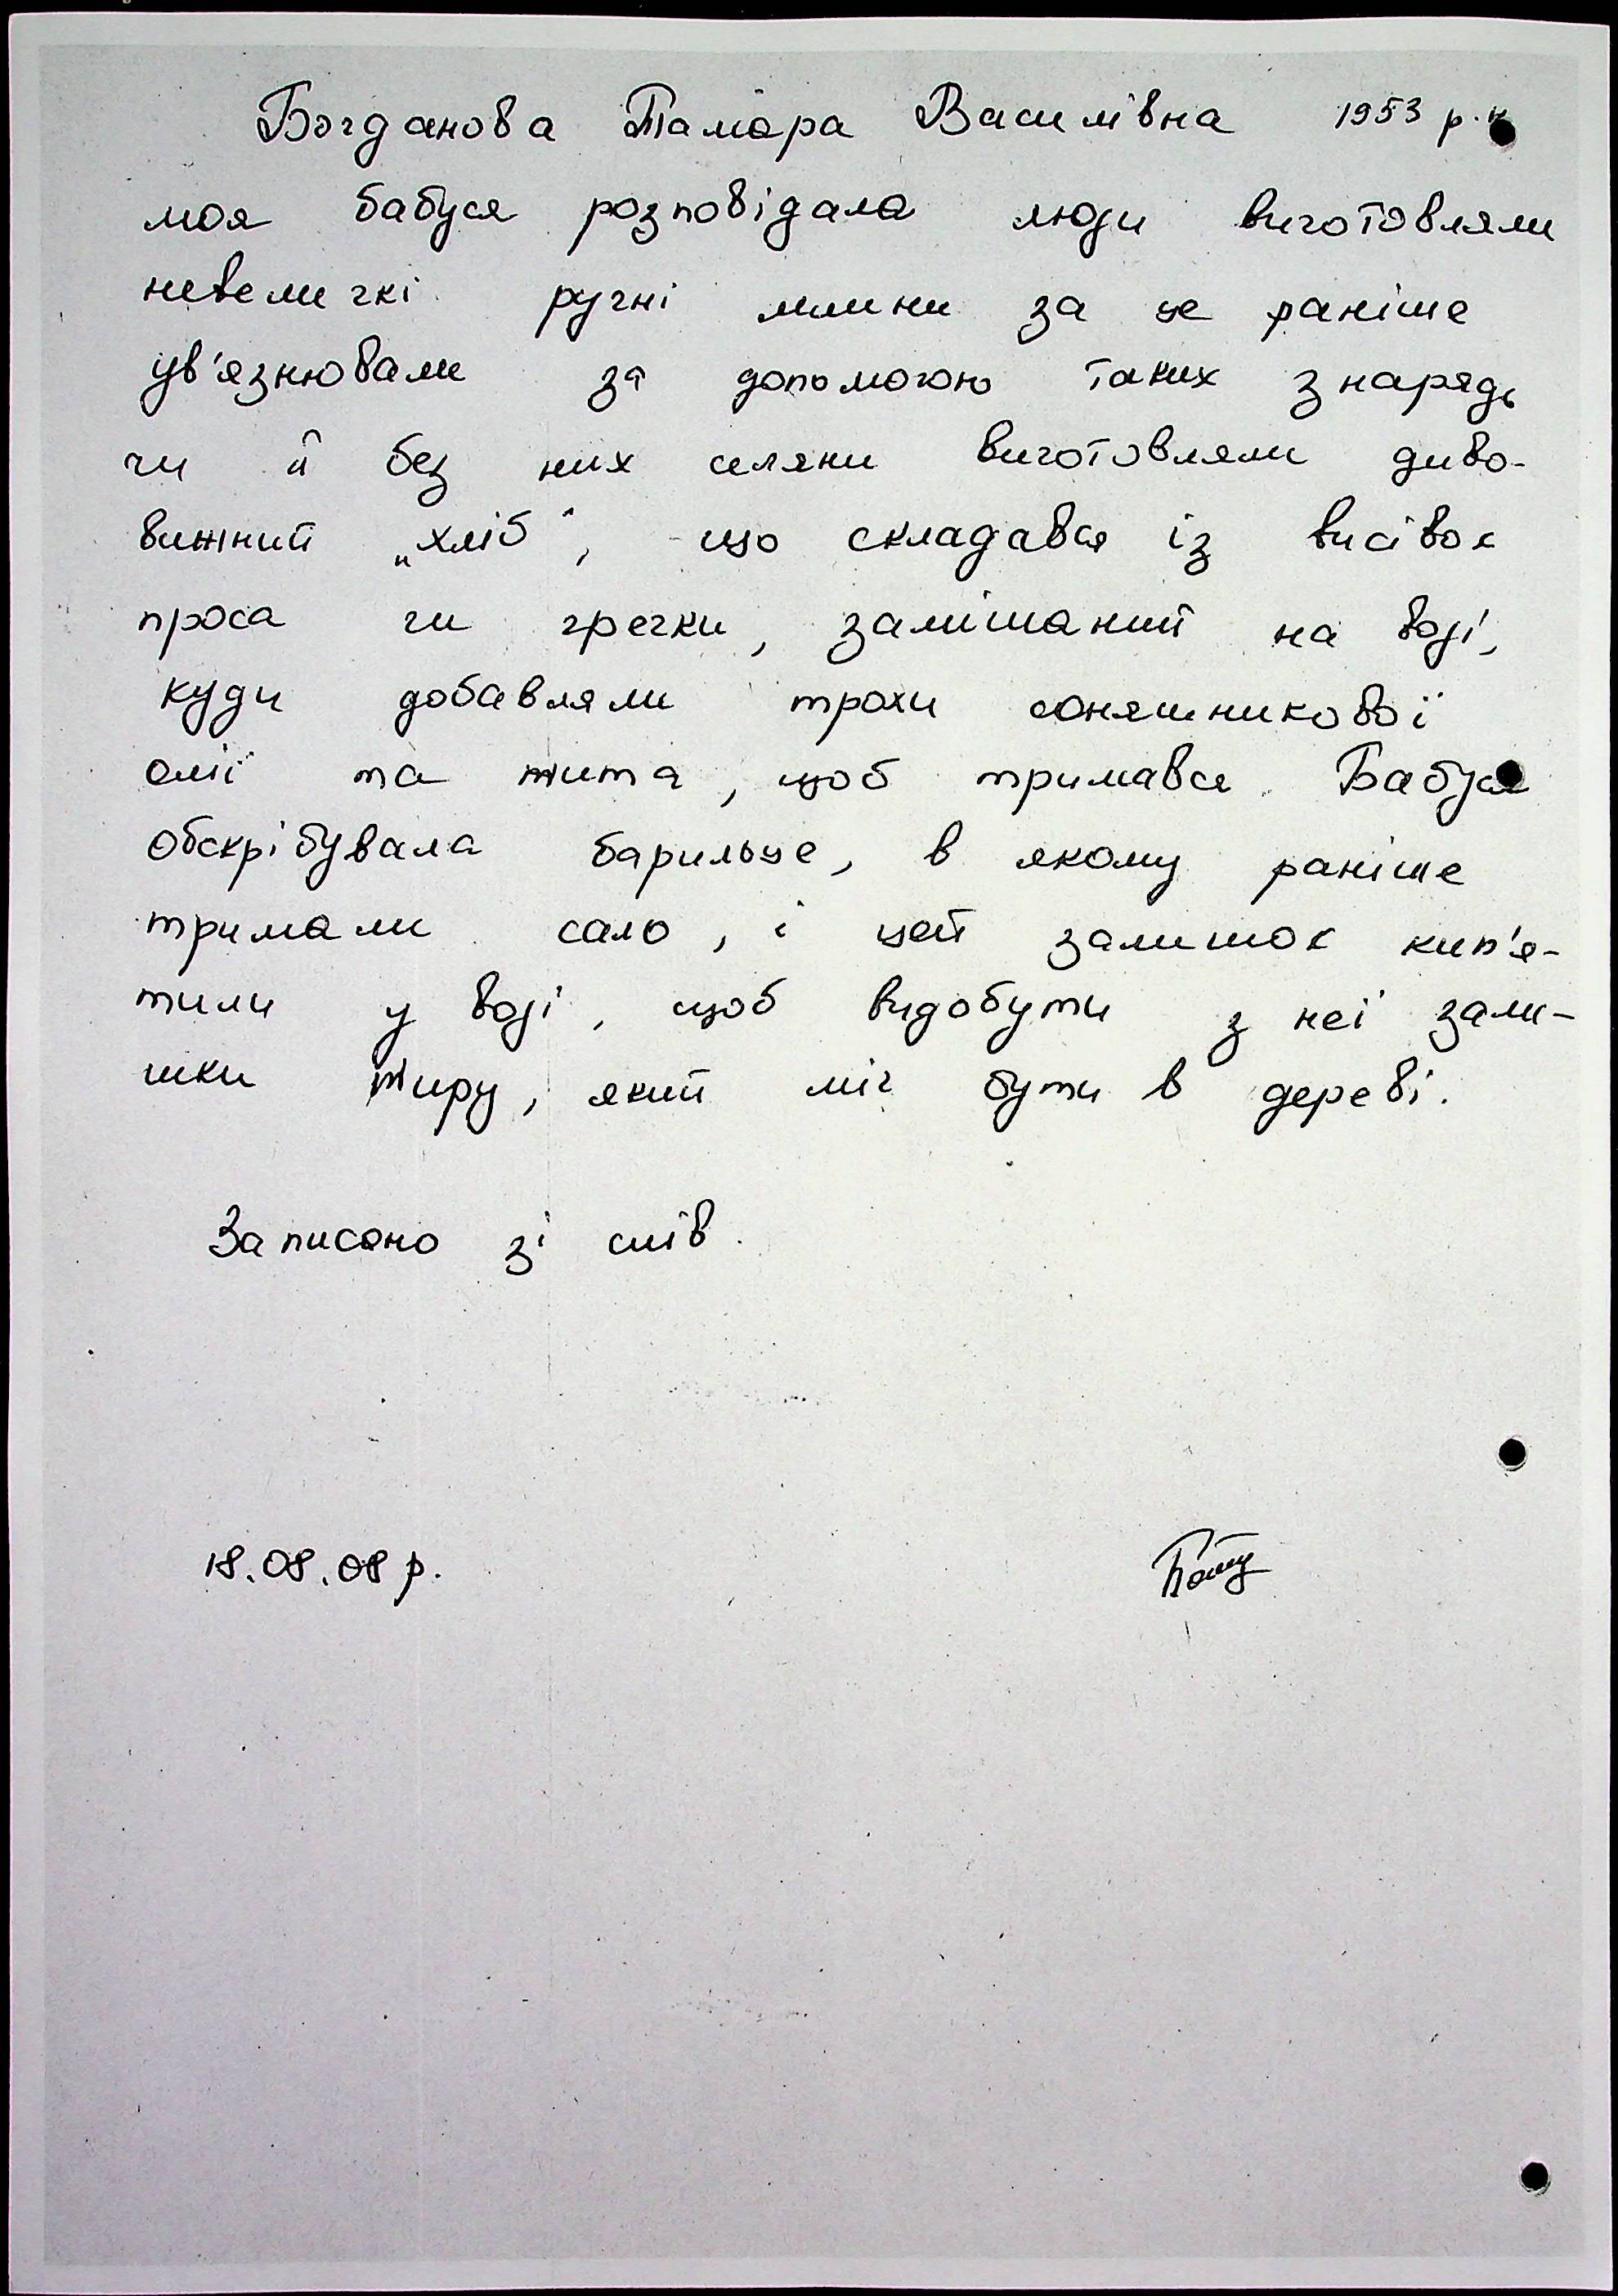 Богданова Тамара Василівна 1953 р.н
моя бабуся розповідала люди виготовляли
невеличкі ручні млини за це раніше
ув'язнювали за допомогою таких знарядь
чи й без них селяни виготовляли диво-
вижний „хліб", що складався із висівок
проса чи гречки, замішаний на воді,
куди добавляли трохи соняшникової
олії та жита, щоб тримався. Бабуся
обскрібувала барильце, в якому раніше
тримали сало, і цей залишок кип'я-
тили у воді, щоб видобути з неї зали-
шки жиру, який міг бути в дереві.
Записано зі слів.
18.08.08 р.